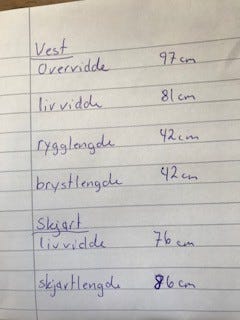 Vest
Overvidde 97 cm
livvidde 81 cm
rygglengde 42 cm
brystlengde 42 cm
Skjørt
livvidde 76 cm
skjørtlengde 86 cm